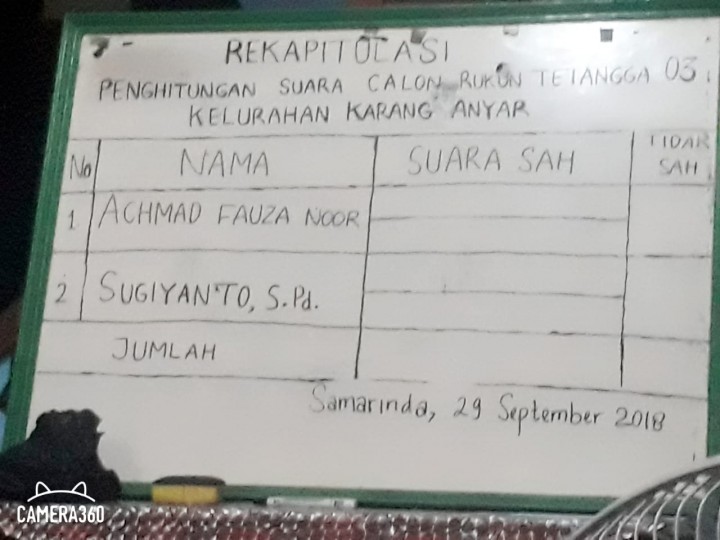 REKAPITOLASI
PENGHITUNGAN SUARA CALON RUKUN TETANGGA 03
KELURAHAN KARANG ANYAR
No NAMA SUARA SAH TIDAK SAH
1 ACHMAD FAUZA NOOR
2 SUGIYANTO, S.Pd.
JUMLAH
Samarinda, 29 September 2018
CAMERA360